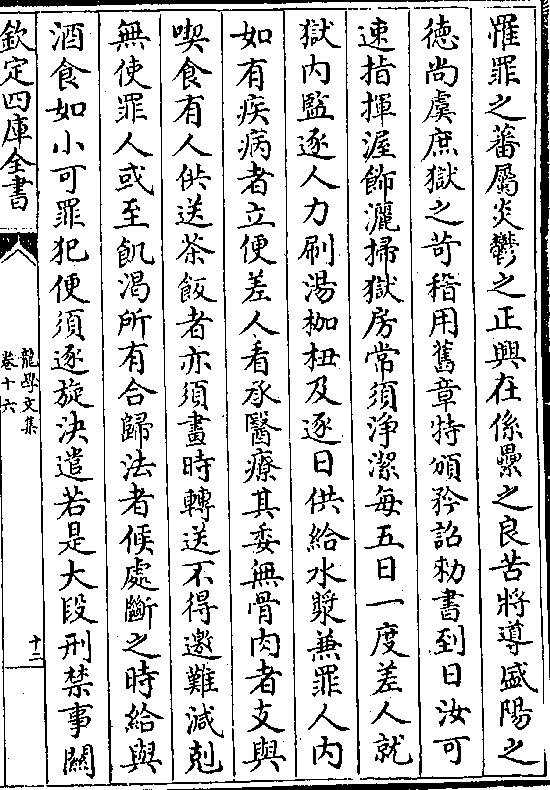 罹罪之蕃屬炎鬱之正興在係纍之良苦將導盛陽之
徳尚虞庶獄之苛稽用舊章特頒矜詔勅書到日汝可
速指揮渥飾灑掃獄房常須淨潔每五日一度差人就
獄内監逐人力刷湯枷杻及逐日供給水漿兼罪人内
如有疾病者立便差人看承醫療其委無骨肉者支與
喫食有人供送茶飯者亦須畫時轉送不得邀難減剋
無使罪人或至飢渴所有合歸法者候處斷之時給與
酒食如小可罪犯便須逐旋決遣若是大段刑禁事關
欽定四庫全書
龍學文集
卷十六
十二